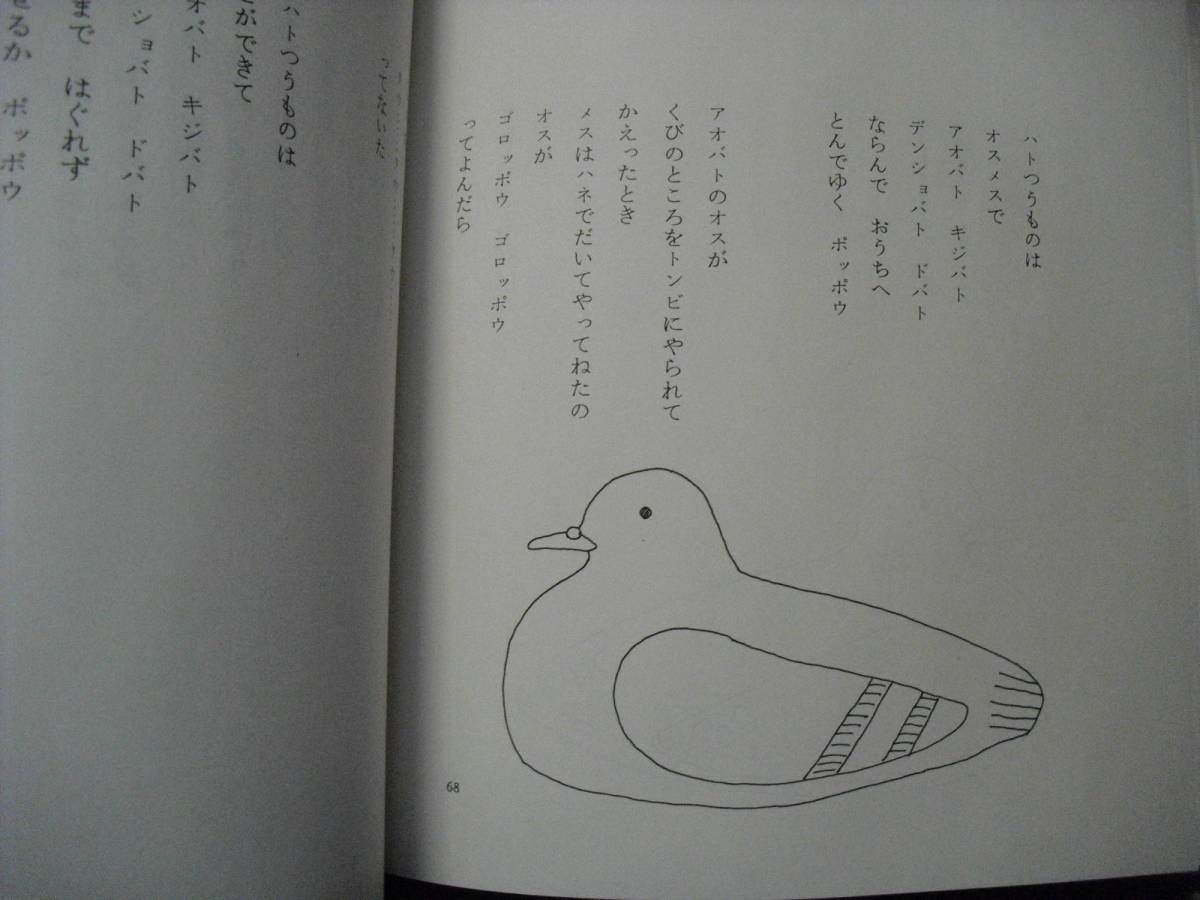 ハトつうものは
オスメスで
アオバト　キジバト
デンショバト　ドバト
ならんで　おうちへ
とんでゆく　ポッポウ
アオバトのオスが
くびのところをトンビにやられて
かえったとき
メスはハネでだいてやってねたの
オスが
ゴロッポウ　ゴロッポウ
ってよんだら
ってないた
ハトつうものは
ができて
オバト　キジバト
ショバト　ドバト
まで　はぐれず
せるか　ポッポウ
68